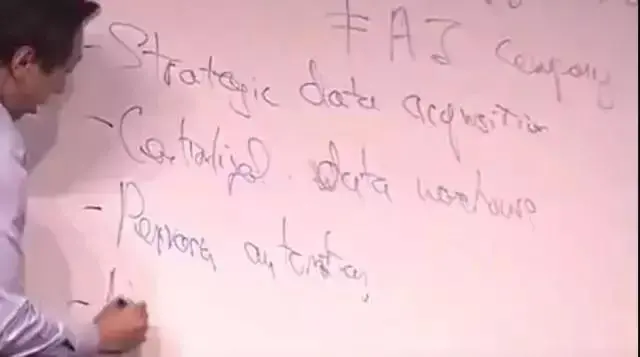 ≠ AI Company
- Strategic data acquisition
- Centralized data warehouse
- Pervasive automation
-